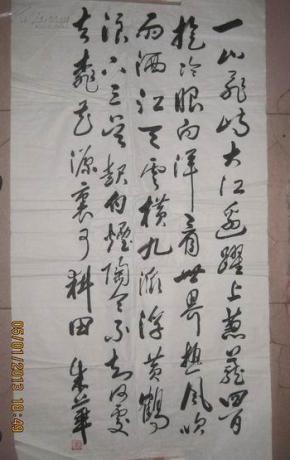 一山飛峙大江邊躍上蔥蘢四百
旋冷眼向洋看世界熱風吹
雨洒江天雲橫九派浮黃鶴
浪下三吳起白煙陶令不知何處
去桃花源裏可耕田 朱華
05/01/2013 10:49